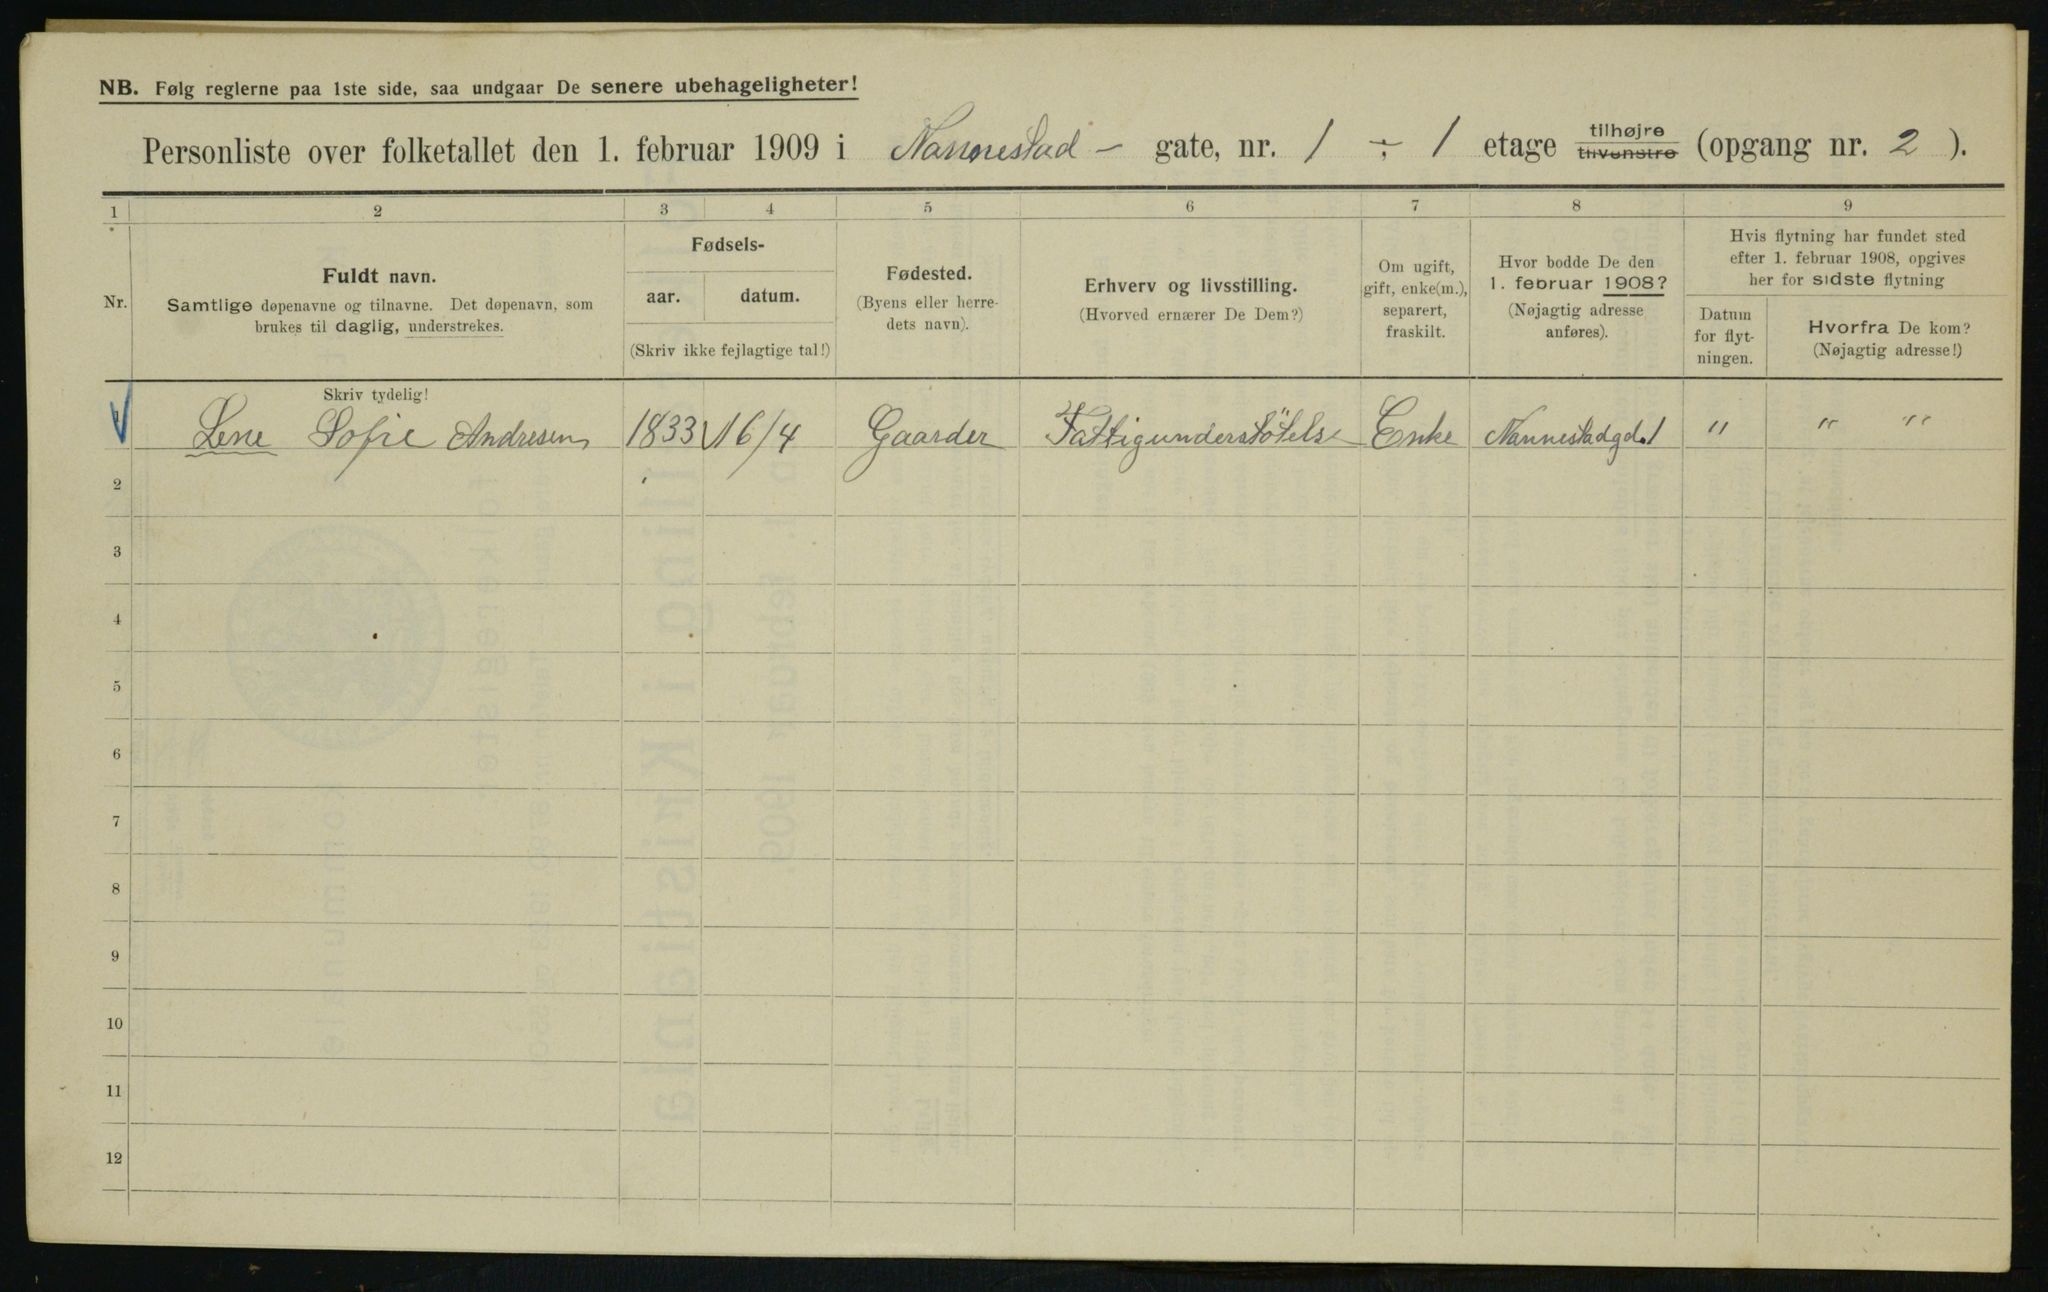 NB. Følg reglerne paa 1ste side, saa undgaar De senere ubehageligheter!
Personliste over folketallet den 1. februar 1909 i Nannestad - gate, nr. 1 ÷ 1 etage tilhøjre tilvenstre (opgang nr. 2 ).
1 2 3 4 5 6 7 8 9
Nr.
Fuldt navn.
Samtlige døpenavne og tilnavne. Det døpenavn, som
brukes til daglig, understrekes.
Fødsels-
aar. datum.
(Skriv ikke fejlagtige tal!)
Fødested.
(Byens eller herre-
dets navn).
Erhverv og livsstilling.
(Hvorved ernærer De Dem?)
Om ugift,
gift, enke(m.),
separert,
fraskilt.
Hvor bodde De den
1. februar 1908?
(Nøjagtig adresse
anføres).
Hvis flytning har fundet sted
efter 1. februar 1908, opgives
her for sidste flytning
Datum
for flyt-
ningen.
Hvorfra De kom?
(Nøjagtig adresse!)
Skriv tydelig!
Lene Sofie Andresen 1833 16/4 Gaarder Fattigunderstötelse Enke Nannestadgd. 1 " " "
2
3
4
5
6
7
8
9
10
11
12